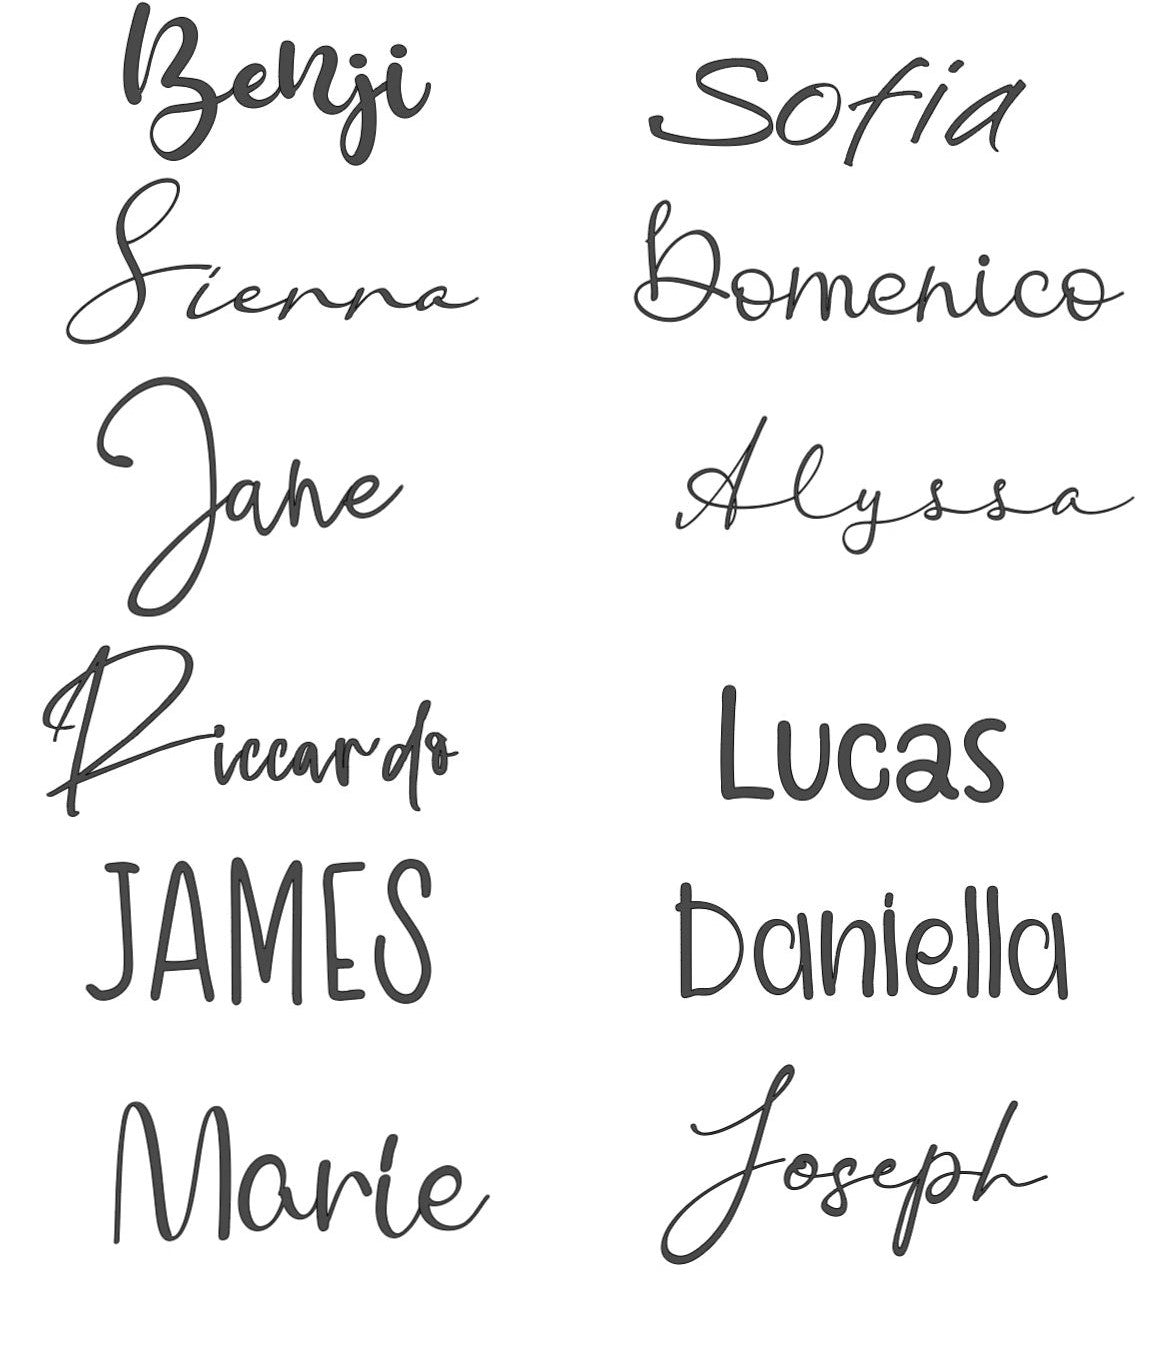 Benji
Sofia
Sienna
Domenico
Jane
Alyssa
Riccardo
Lucas
JAMES
Daniella
Marie
Joseph